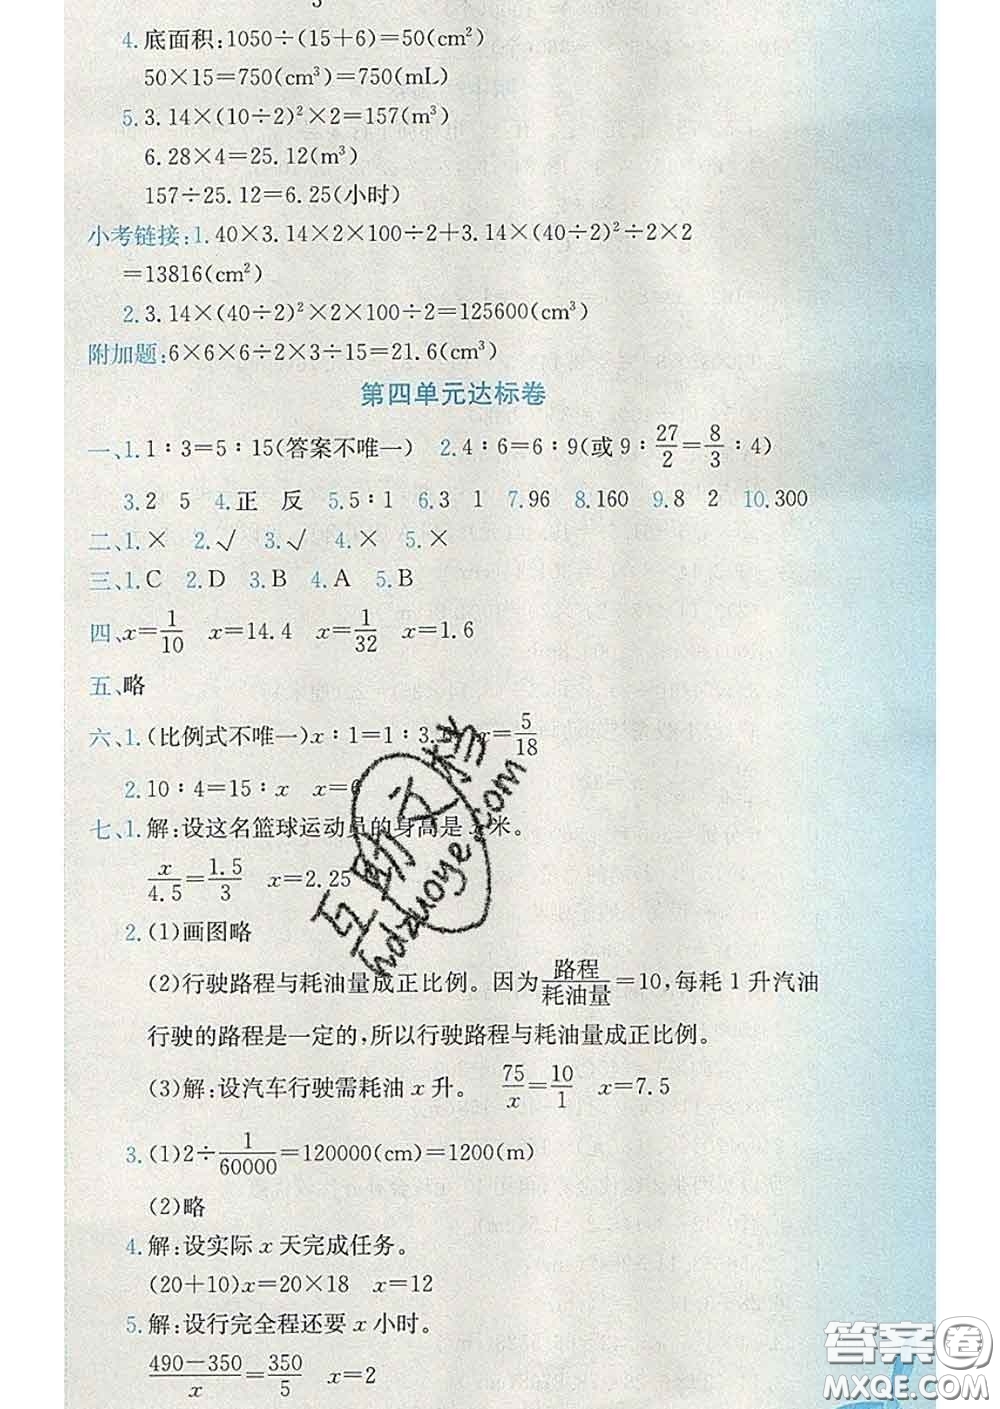 4.底面积:1050÷(15+6)=50(cm²)
50×15=750(cm³)=750(mL)
5.3.14×(10÷2)²×2=157(m³)
6.28×4=25.12(m³)
157÷25.12=6.25(小时)
小考链接:1.40×3.14×2×100÷2+3.14×(40÷2)²÷2×2
=13816(cm²)
2.3.14×(40÷2)²×2×100÷2=125600(cm³)
附加题:6×6×6÷2×3÷15=21.6(cm³)
第四单元达标卷
一、1.1∶3=5∶15(答案不唯一) 2.4∶6=6∶9(或9∶27/2=8/3∶4)
3.2 5 4.正 反 5.5∶1 6.3 1 7.96 8.160 9.8 2 10.300
二、1.× 2.√ 3.√ 4.× 5.×
三、1.C 2.D 3.B 4.A 5.B
四、x=1/10 x=14.4 x=1/32 x=1.6
五、略
六、1.(比例式不唯一)x∶1=1∶3. x=5/18
2.10∶4=15∶x x=6
七、1.解:设这名篮球运动员的身高是x米。
x/4.5=1.5/3 x=2.25
2.(1)画图略
(2)行驶路程与耗油量成正比例。因为路程/耗油量=10,每耗1升汽油
行驶的路程是一定的,所以行驶路程与耗油量成正比例。
(3)解:设汽车行驶需耗油x升。 75/x=10/1 x=7.5
3.(1)2÷1/60000=120000(cm)=1200(m)
(2)略
4.解:设实际x天完成任务。
(20+10)x=20×18 x=12
5.解:设行完全程还要x小时。
(490-350)/x=350/5 x=2
互助文档
hdzuoye.com
答案圈
MXQE.COM